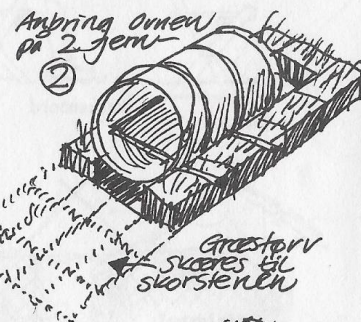 Anbring Ovnen
på 2 jern-
2
Græstørv
skæres til
skorstenen